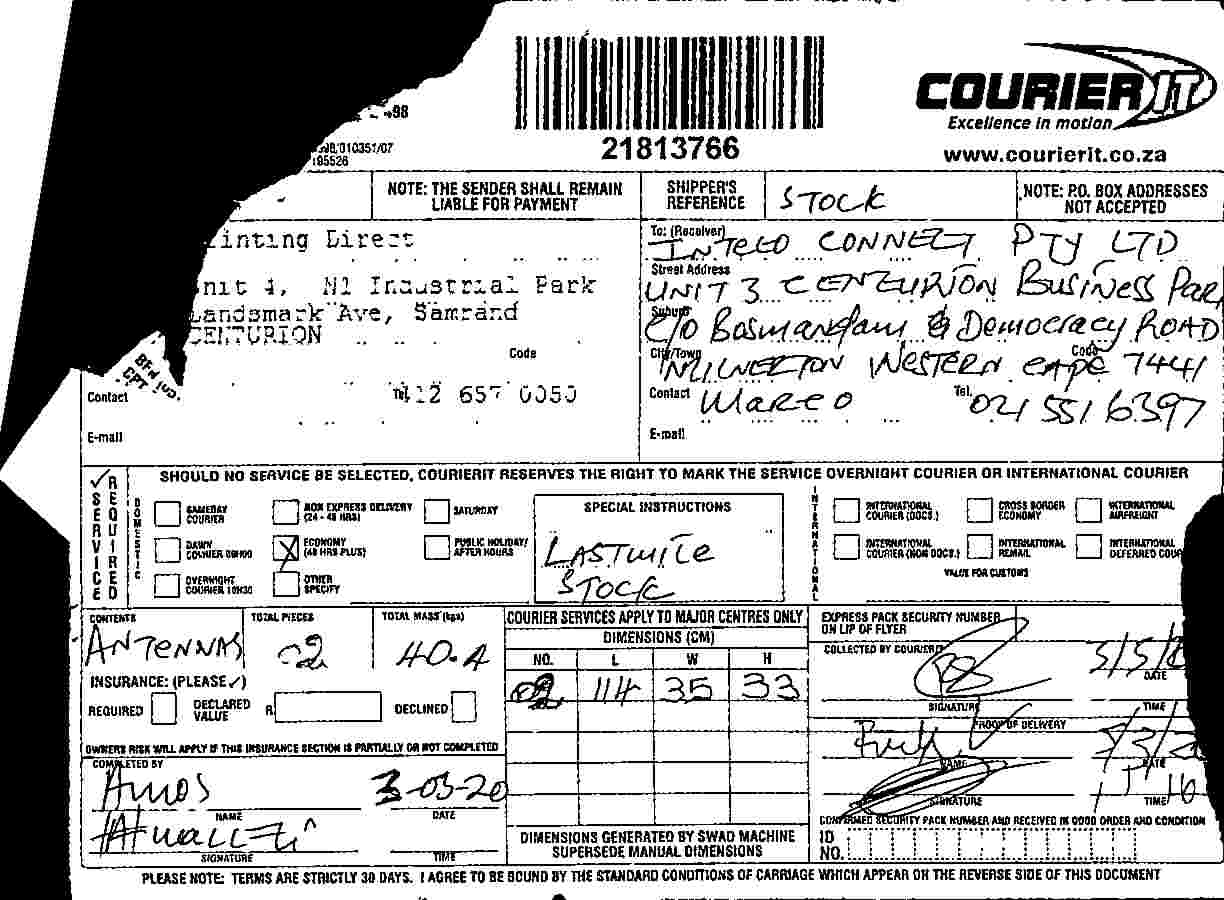 98
010351/07
195526
21813766
COURIER IT
Excellence in motion
www.courierit.co.za
NOTE: THE SENDER SHALL REMAIN LIABLE FOR PAYMENT
SHIPPER'S REFERENCE
STOCK
NOTE: P.O. BOX ADDRESSES NOT ACCEPTED
rinting Direct
nit 4, N1 Industrial Park
Landsmark Ave, Samrand
CENTURION
Code
Contact
Tel. 012 657 0050
E-mail
To: (Receiver)
INTELO CONNECT PTY LTD
Street Address
UNIT 3 CENTURION BUSINESS PAR
Suburb
c/o Bosmansdam & Democracy ROAD
City/Town
MILNERTON WESTERN CAPE Code 7441
Contact MARCO Tel. 021 551 6397
E-mail
SERVICE REQUIRED
SHOULD NO SERVICE BE SELECTED, COURIERIT RESERVES THE RIGHT TO MARK THE SERVICE OVERNIGHT COURIER OR INTERNATIONAL COURIER
DOMESTIC
SAMEDAY COURIER
NON EXPRESS DELIVERY (24 - 48 HRS)
SATURDAY
DAWN COURIER 09H00
X ECONOMY (48 HRS PLUS)
PUBLIC HOLIDAY/ AFTER HOURS
OVERNIGHT COURIER 10H30
OTHER SPECIFY
SPECIAL INSTRUCTIONS
LASTMILE
STOCK
INTERNATIONAL
INTERNATIONAL COURIER (DOCS.)
CROSS BORDER ECONOMY
INTERNATIONAL AIRFREIGHT
INTERNATIONAL COURIER (NON DOCS.)
INTERNATIONAL REMAIL
INTERNATIONAL DEFERRED COUR
VALUE FOR CUSTOMS
CONTENTS
ANTENNAS
TOTAL PIECES
02
TOTAL MASS (kgs)
40.4
INSURANCE: (PLEASE ✓)
REQUIRED
DECLARED VALUE
R
DECLINED
OWNERS RISK WILL APPLY IF THIS INSURANCE SECTION IS PARTIALLY OR NOT COMPLETED
COMPLETED BY
Amos
NAME
3-03-20
DATE
SIGNATURE
TIME
COURIER SERVICES APPLY TO MAJOR CENTRES ONLY
DIMENSIONS (CM)
NO. L W H
02 114 35 33
DIMENSIONS GENERATED BY SWAD MACHINE SUPERSEDE MANUAL DIMENSIONS
EXPRESS PACK SECURITY NUMBER ON LIP OF FLYER
COLLECTED BY COURIERIT
SIGNATURE
DATE
TIME
PROOF OF DELIVERY
NAME
DATE
SIGNATURE
TIME
CONFIRMED SECURITY PACK NUMBER AND RECEIVED IN GOOD ORDER AND CONDITION
ID NO.
PLEASE NOTE: TERMS ARE STRICTLY 30 DAYS. I AGREE TO BE BOUND BY THE STANDARD CONDITIONS OF CARRIAGE WHICH APPEAR ON THE REVERSE SIDE OF THIS DOCUMENT